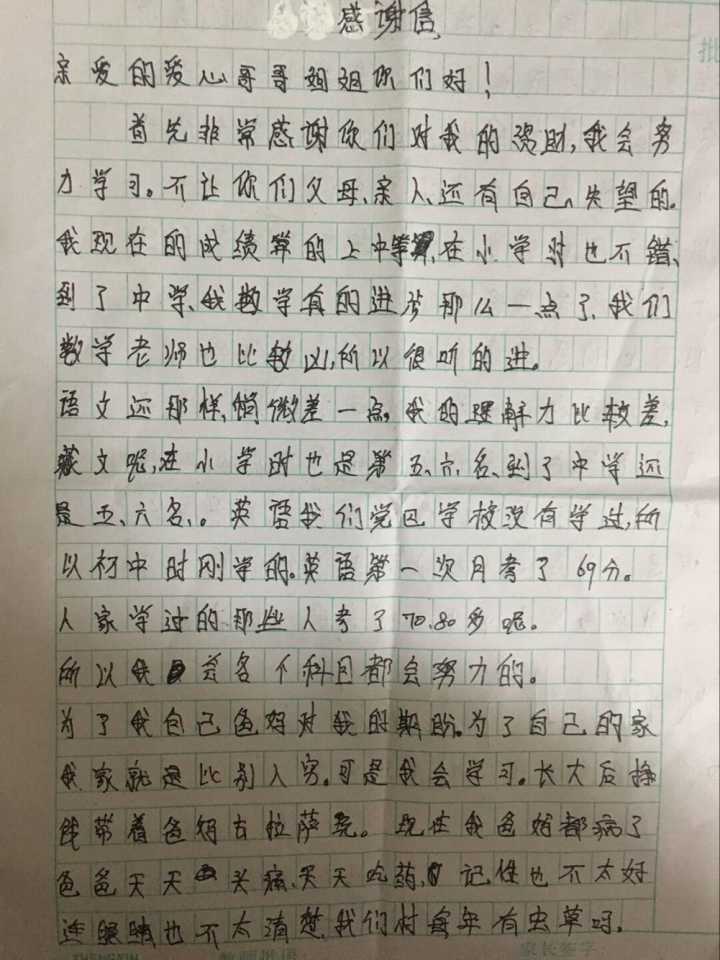 感谢信
亲爱的爱心哥哥姐姐你们好！
首先非常感谢你们对我的资助,我会努
力学习。不让你们父母、亲人、还有自己、失望的。
我现在的成绩算的上中等,在小学时也不错、
到了中学、我数学真的进步那么一点了、我们
数学老师也比较凶,所以很听的进。
语文还那样,悄微差一点,我的理解力比较差,
藏文呢,在小学时也是第五、六名、到了中学还
是五、六名、。英语我们党巴学校没有学过,所
以初中时刚学的。英语第一次月考了69分。
人家学过的那些人考了70.80多呢。
所以我会各个科目都会努力的。
为了我自己爸妈对我的期盼。为了自己的家
我家就是比别人穷。可是我会学习。长大后挣
钱带着爸妈去拉萨玩。现在我爸妈都病了
爸爸天天头痛、天天吃药、记性也不太好
连眼睛也不太清楚,我们村每年有虫草吗。
批
家长签字